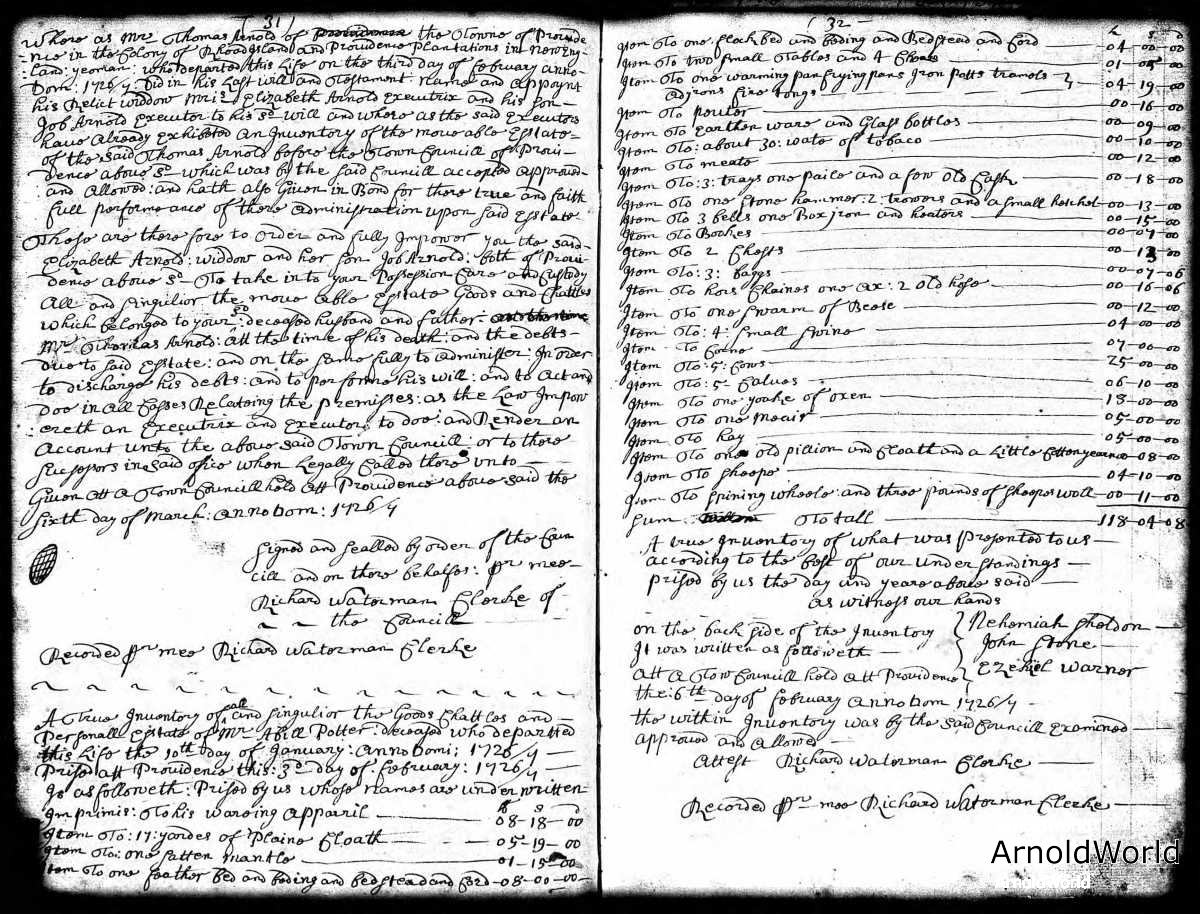 ( 31 )
Where as Mr Thomas Arnold of the Towne of Provide
nce in the Colony of Rhoad Island and Providence Plantations in New Eng-
land: yeoman: who departed this Life on the third day of february anno-
Dom: 1726/7: Did in his Last will and Testament: name and appoynt
his Relict widdow Mris Elizabeth Arnold executrix and his son-
Job Arnold executor to his sd will and where as the said executors
have already exhibited an Inventory of the moveable Estate-
of the said Thomas Arnold before the Town Councill of Provi-
dence above sd which was by the said Councill accepted approved-
and allowed: and hath also Given in Bond for there true and faith
full performance of there administration upon said Estate
These are there fore to order and fully Impower you the said-
Elizabeth Arnold: widdow and her son Job Arnold: both of Provi-
dence above sd To take in to your Possession Care and Custody
All and singulior the move able Estate Goods and Chattles
which belonged to your sd: deceased husband and father-
Mr Thomas Arnold: att the time of his death: and the debts-
due to said Estate: and on the same fully to administer: In order
to discharge his debts: and to performe his will: and to act and
doe in all Casses Relateing the premisses: as the Law Impow
ereth an executrix and executor, to doe: and Render an
account unto the above said Town Councill: or to there
successors in said office when Legally Called there unto
Given att a Town Councill held att Providence above said the
sixth day of March: Anno Dom: 1726/7
signed and sealled by order of the Coun
cill and on there behalfes: Pr mee-
Richard Waterman Clerke of
the Councill
Recorded Pr mee Richard Waterman Clerke
A True Inventory of all and singulior the Goods Chattles and-
Personall Estate of Mr Abill Potter: deceased who departed
this Life the 10th day of January: anno Domi; 1726/7
Prised att Providence this: 3d day of february: 1726/7
Is as followeth: Prised by us whose names are under written
£ s d
Imprimis: To his wareing apparil 08-18-00
Item To: 17: yardes of Plaine Cloath 05-19-00
Item To: one satten mantle 01-15-00
Item To one feather bed and beding and bedstead and Cord-08-00-00
( 32 -
£ s d
Item To one flock bed and beding and Bedstead and Cord 04-00-00
Item To two small Tables and 4 Chears 01-05-00
Item To one warming pan frying pans Iron potts tramols
Adjrons fire tongs 04-19-00
Item To pewter 00-16-00
Item To earthen ware and Glass bottles 00-09-00
Item To: about 30: wate of tobaco 00-10-00
Item To meate 00-12-00
Item To: 3: trays one paile and a few old Caske 00-18-00
Item To one stone hammer: 2: trowers and a small hatchet 00-13-00
Item To 3 bells one Box iron and heaters 00-15-00
Item To Bookes 00-07-00
Item To 2 Chests 00-13-00
Item To: 3: baggs 00-07-06
Item To hors Chaines one ax: 2 old hose 00-16-06
Item To one swarm of Beese 00-12-00
Item To: 4: small swine 04-00-00
Item To Corne 07-00-00
Item To: 5: Cows 25-00-00
Item To: 5: Calves 06-10-00
Item To one yoake of oxen 18-00-00
Item To one meair 05-00-00
Item To hay 05-00-00
Item To one old pillion and Cloath and a Little Cotten yearne 00-08-00
Item To sheepe 04-10-00
Item To spining wheele: and three pounds of sheeps woll 00-11-00
sum To tall 118-04-08
A true Inventory of what was Presented to us
according to the best of our under standings
prised by us the day and yeare above said
as witness our hands
on the back side of the Inventory
It was written as followeth
Nehemiah Sheldon
John Stone
Ezekiel Warner
att a Town Councill held att Providence
the: 6th day of february anno Dom 1726/7
the within Inventory was by the said Councill examined
approved and Allowed
Attest Richard Waterman Clerke
Recorded Pr mee Richard Waterman Clerke
ArnoldWorld